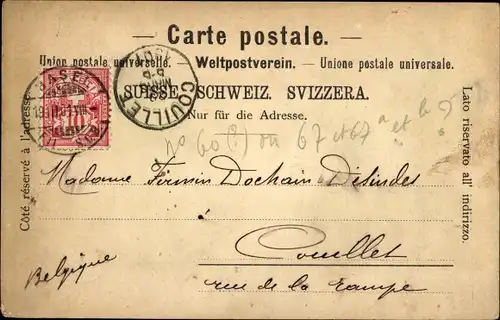 — Carte postale. —
Union postale universelle. — Weltpostverein. — Unione postale universale.
SUISSE. SCHWEIZ. SVIZZERA.
Nur für die Adresse.
Côté réservé à l'adresse.
Lato riservato all' indirizzo.
BASEL
10
COUILLET
no 60 (?) ou 67 et 67a et b
Madame Firmin Dochain Disindes
Couillet
rue de la rampe
Belgique